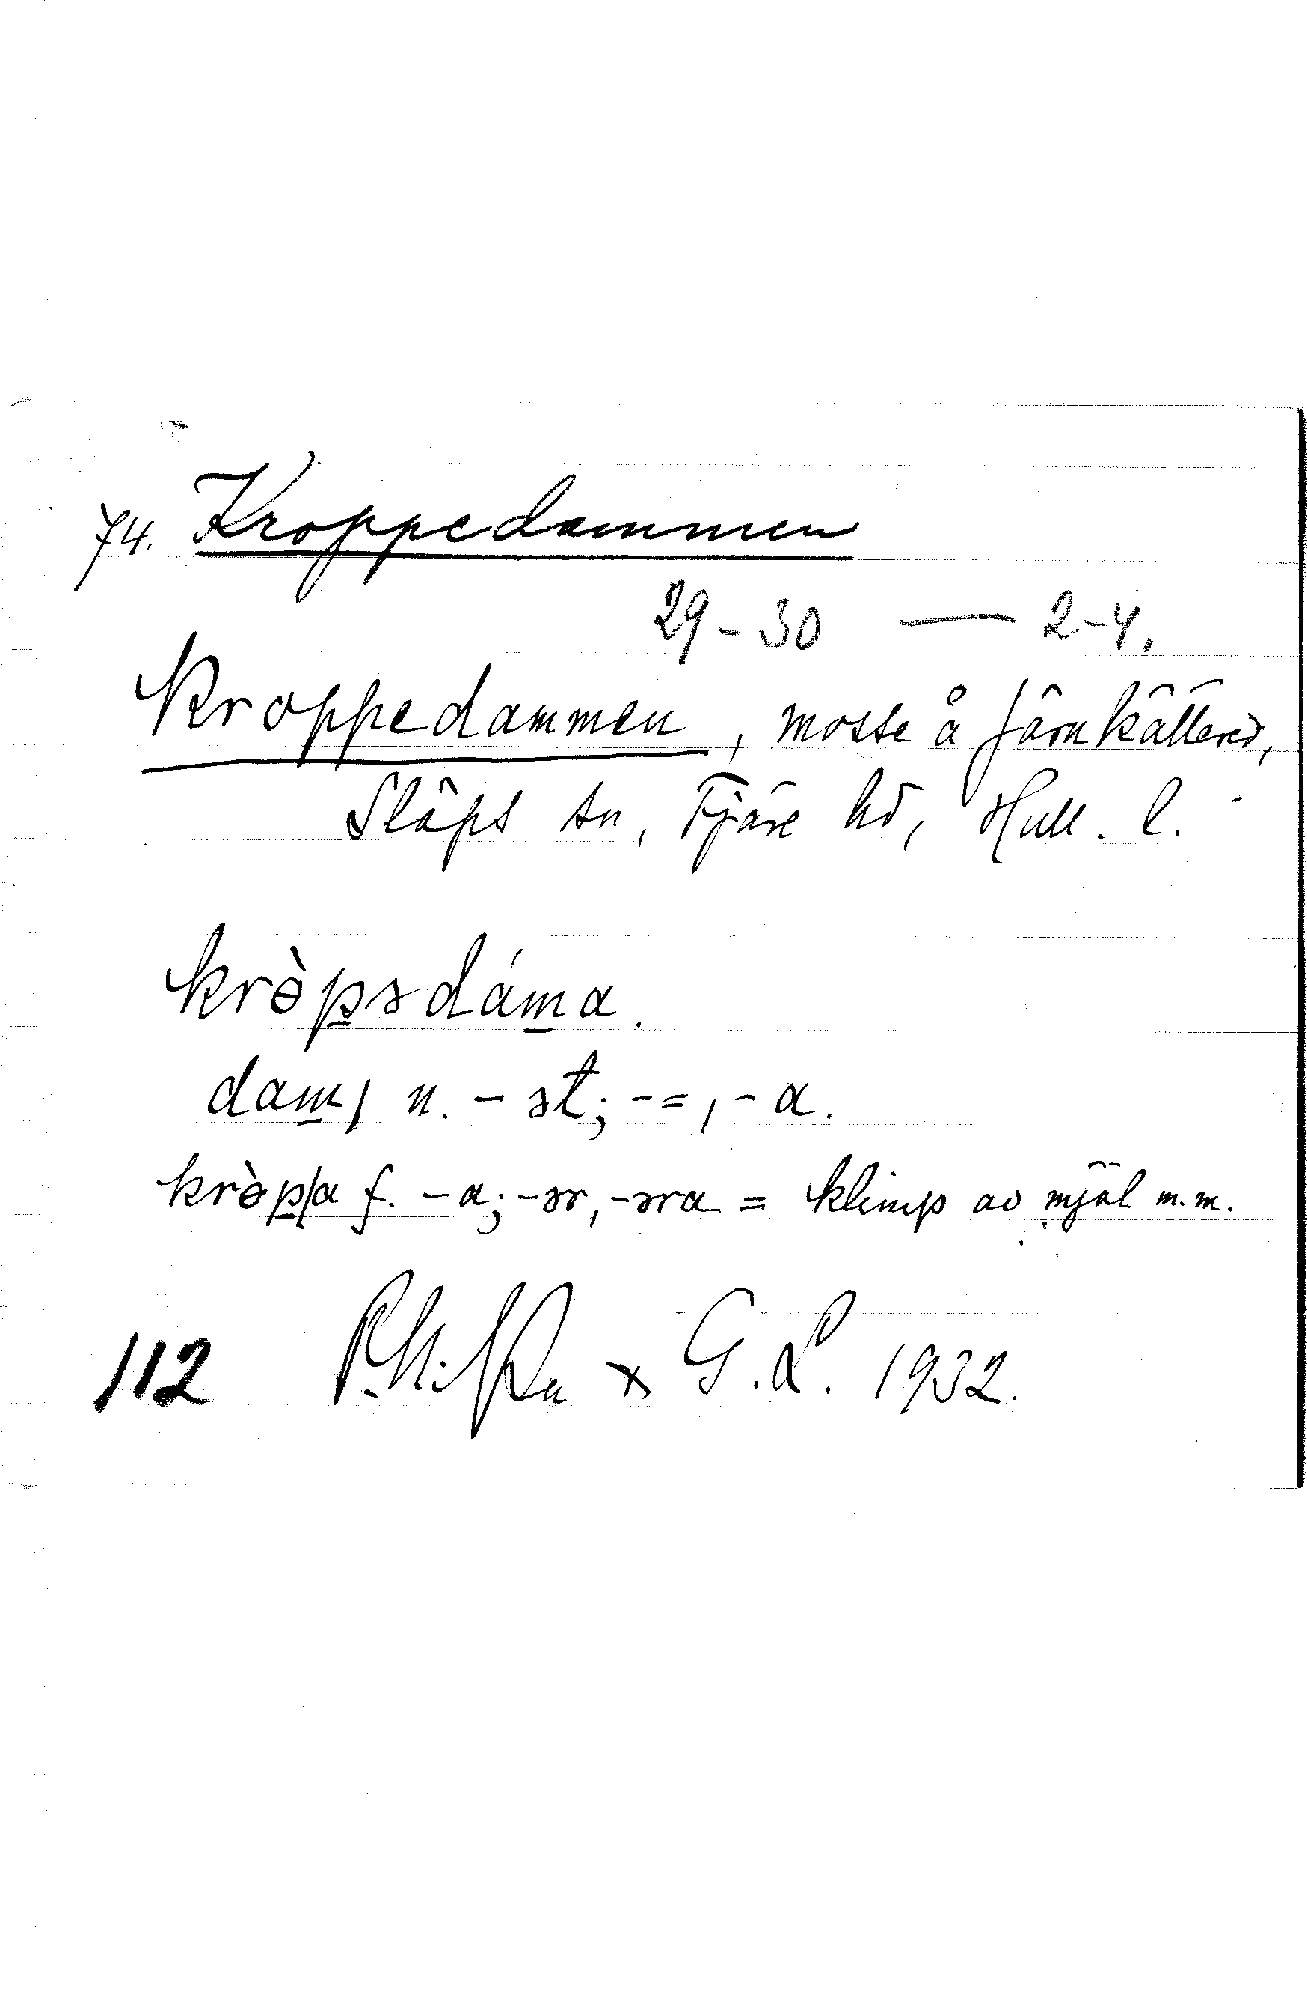 74. Kroppedammen
29-30 — 2-4.
Kroppedammen, mosse å Järnkällered,
Släps sn, Fjäre hd, Hall. l.
krɵ̀pədáma.
dam/ n. -ət; -=, -a.
krɵ̀p/a f. -a; -ər, -əra = klimp av mjöl m.m.
112 G. L. 1932.